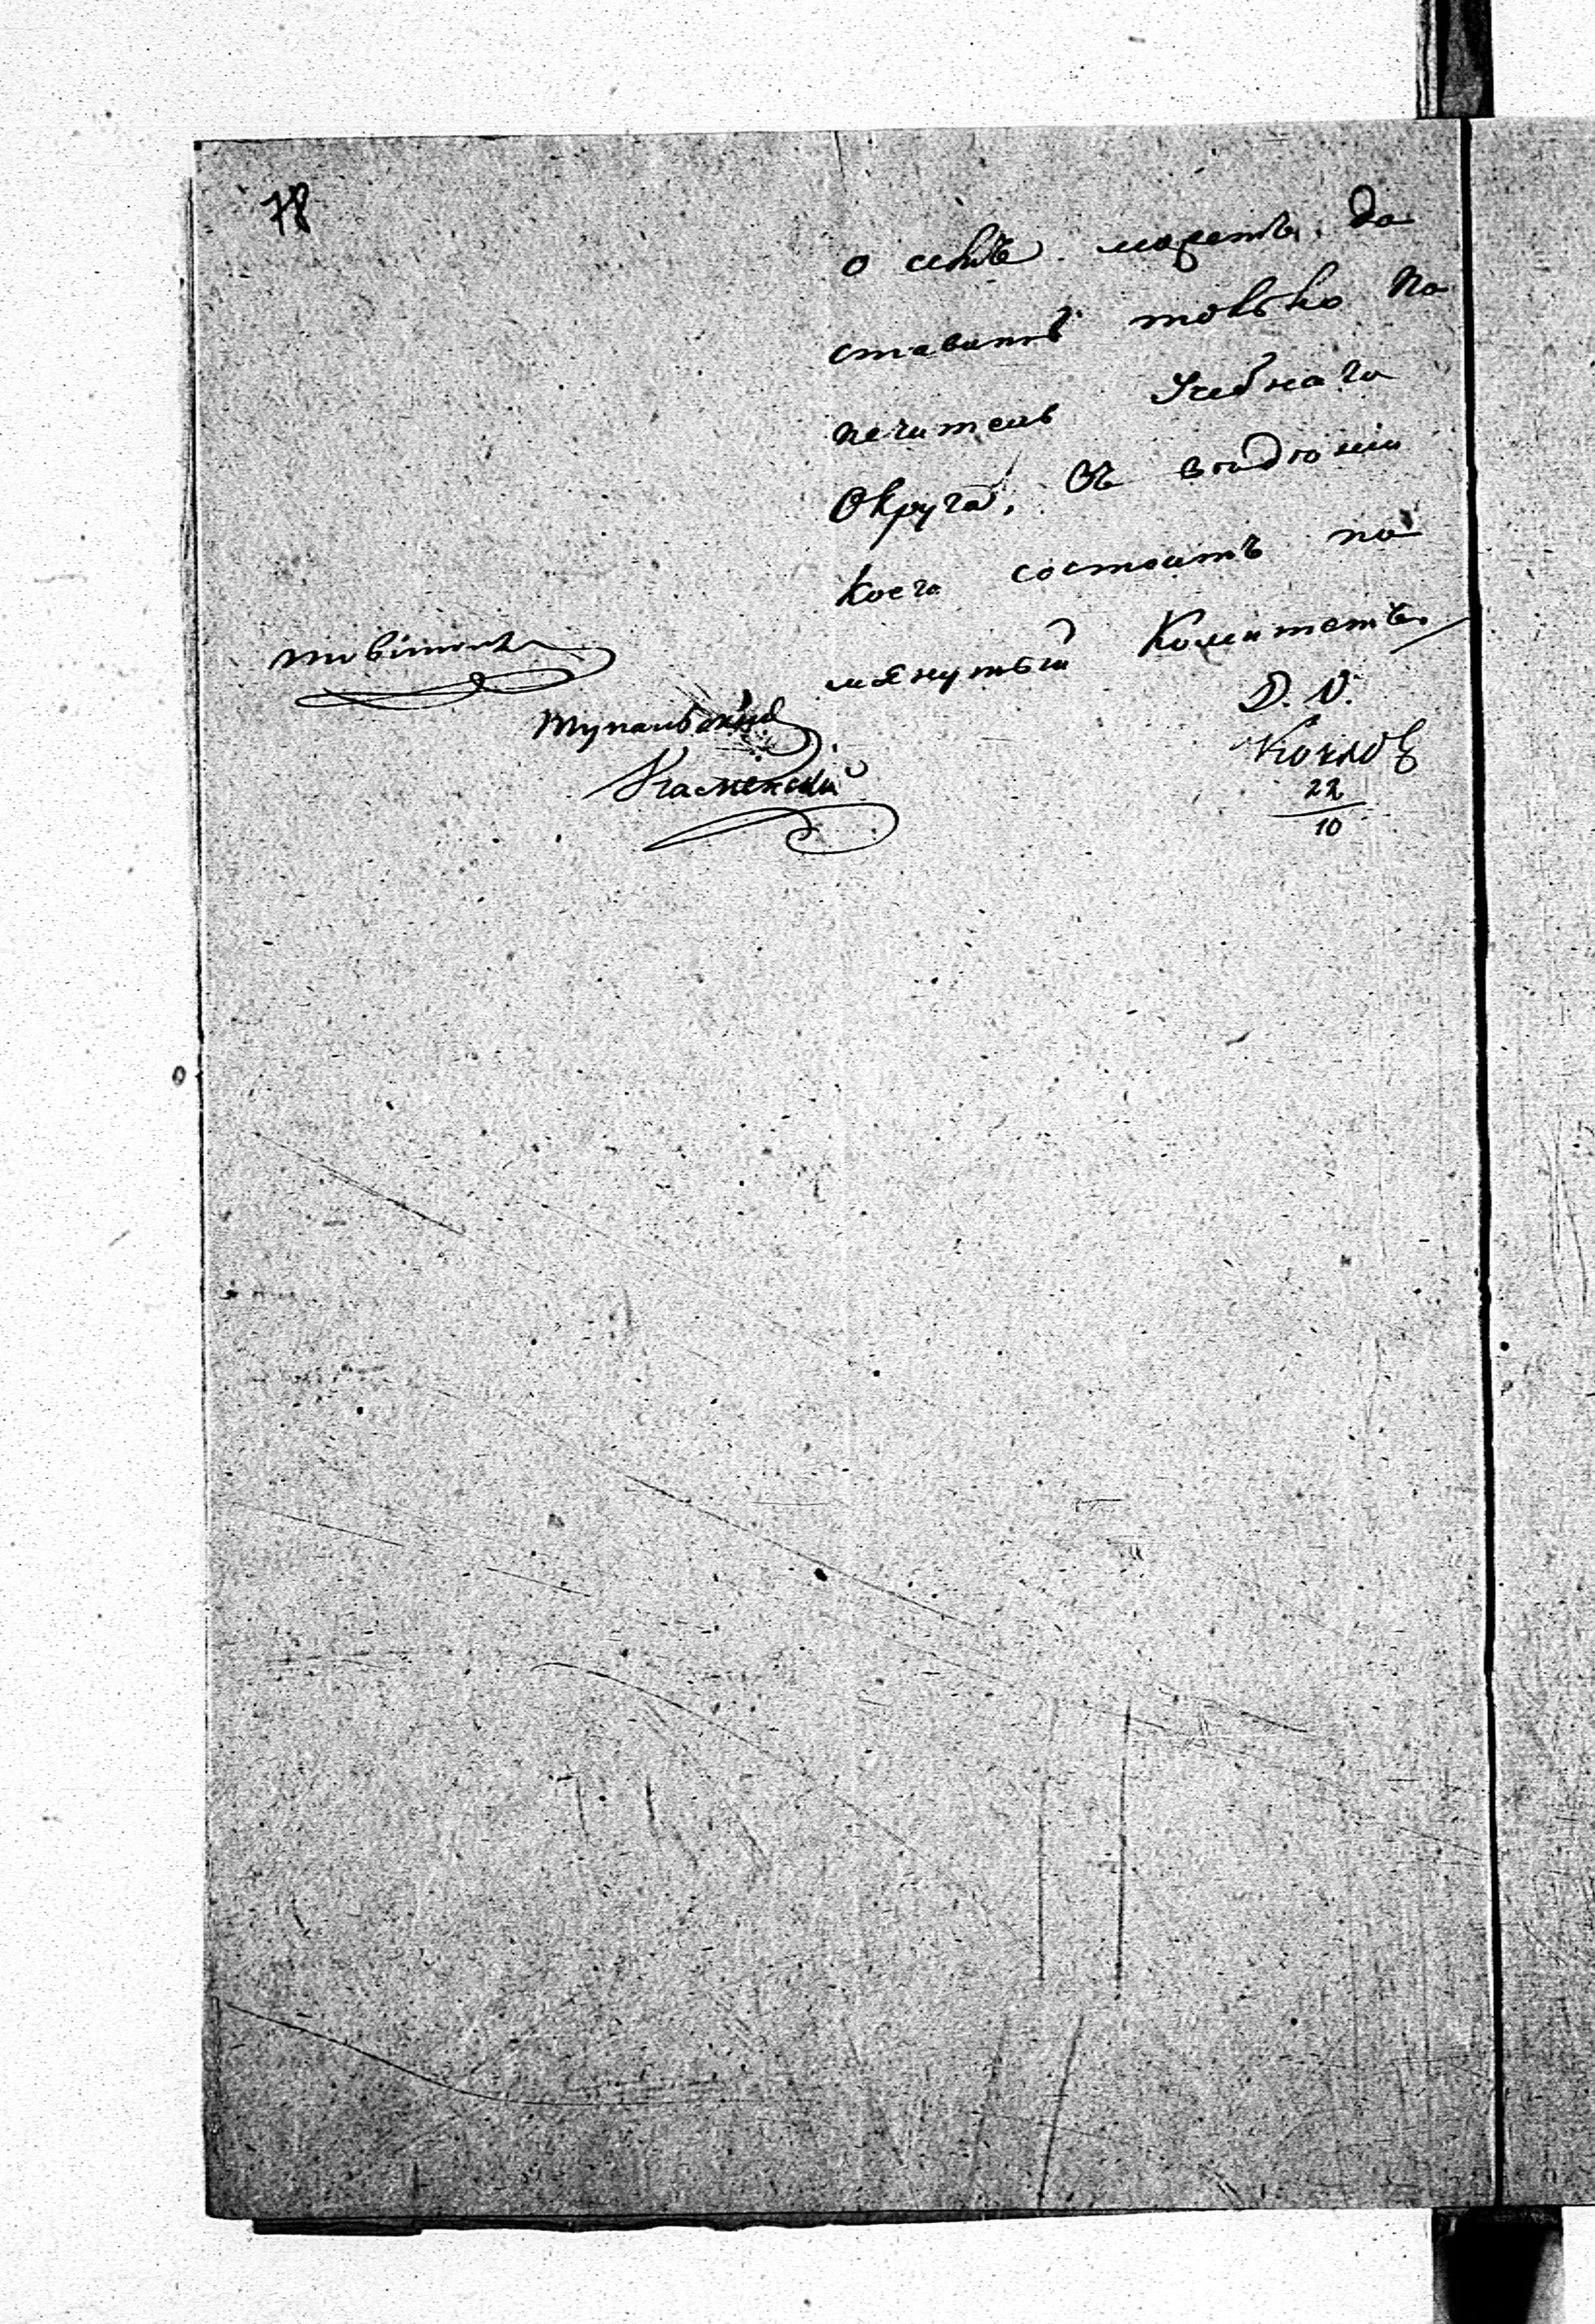 78
о семъ можетъ до
ставить только По
печитель Учебнаго
Округа, въ вѣдѣніи
коего состоитъ по
мянутый Комитетъ.
Тупальскій
Каменскій
22
10